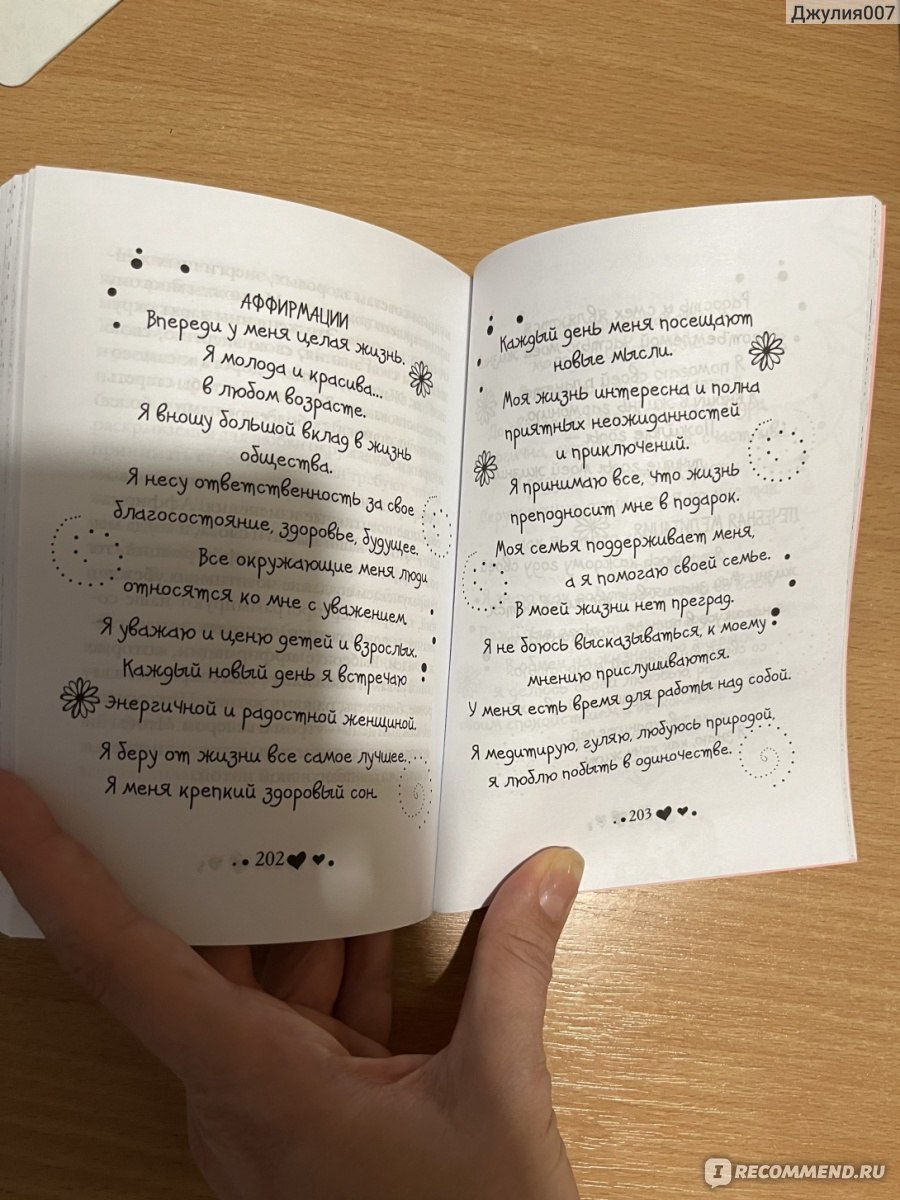 Джулия007
АФФИРМАЦИИ
Впереди у меня целая жизнь.
Я молода и красива...
в любом возрасте.
Я вношу большой вклад в жизнь
общества.
Я несу ответственность за свое
благосостояние, здоровье, будущее.
Все окружающие меня люди
относятся ко мне с уважением.
Я уважаю и ценю детей и взрослых.
Каждый новый день я встречаю
энергичной и радостной женщиной.
Я беру от жизни все самое лучшее.
Я меня крепкий здоровый сон.
202
Каждый день меня посещают
новые мысли.
Моя жизнь интересна и полна
приятных неожиданностей
и приключений.
Я принимаю все, что жизнь
преподносит мне в подарок.
Моя семья поддерживает меня,
а я помогаю своей семье.
В моей жизни нет преград.
Я не боюсь высказываться, к моему
мнению прислушиваются.
У меня есть время для работы над собой.
Я медитирую, гуляю, любуюсь природой,
я люблю побыть в одиночестве.
203
IRECOMMEND.RU